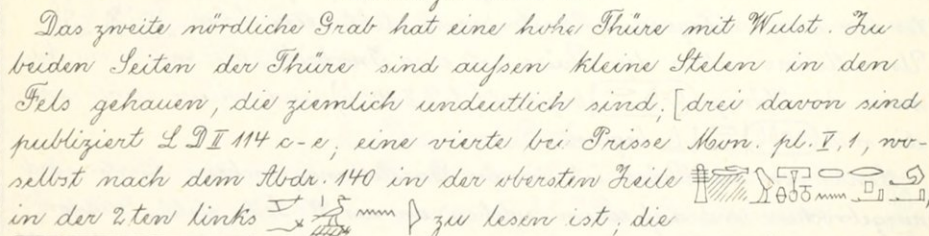 Das zweite nördliche Grab hat eine hohe Thüre mit Wulst. Zu
beiden Seiten der Thüre sind außen kleine Stelen in den
Fels gehauen, die ziemlich undeutlich sind; [drei davon sind
publiziert LD II 114 c-e; eine vierte bei Prisse Mon. pl. V, 1, wo-
selbst nach dem Abdr. 140 in der obersten Zeile
in der 2ten links zu lesen ist; die